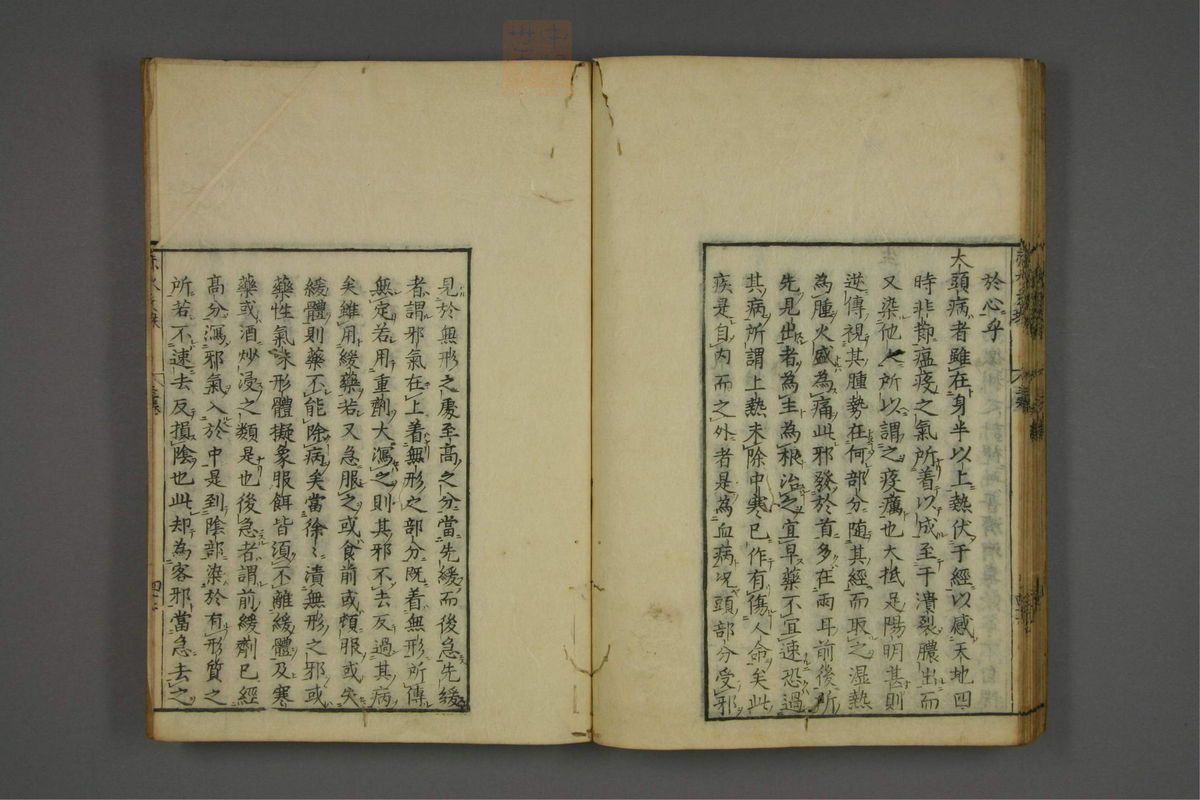 於心乎
大頭病者雖在身半以上熱伏于經以感天地四
時非節瘟疫之氣所着以成至于潰裂膿出而
又染他人所以謂之疫癘也大抵足陽明甚則
逆傳視其腫勢在何部分随其經而取之湿熱
為腫火盛為痛此邪發於首多在兩耳前後所
先見出者為主為根治之宜早藥不宜速恐過
其病所謂上熱未除中寒已作有傷人命矣此
疾是自内而之外者是為血病况頭部分受邪
見於無形之處至高之分當先緩而後急先緩
者謂邪氣在上着無形之部分既着無形所傳
無定若用重劑大瀉之則其邪不去反過其病
矣雖用緩藥若又急服之或食前或頓服或失
緩體則藥不能除病矣當徐〻漬無形之邪或
藥性氣味形體擬象服餌皆須不離緩體及寒
藥或酒炒浸之類是也後急者謂前緩劑已經
高分瀉邪氣入於中是到陰部染於有形質之
所若不速去反損陰也此却為客邪當急去之